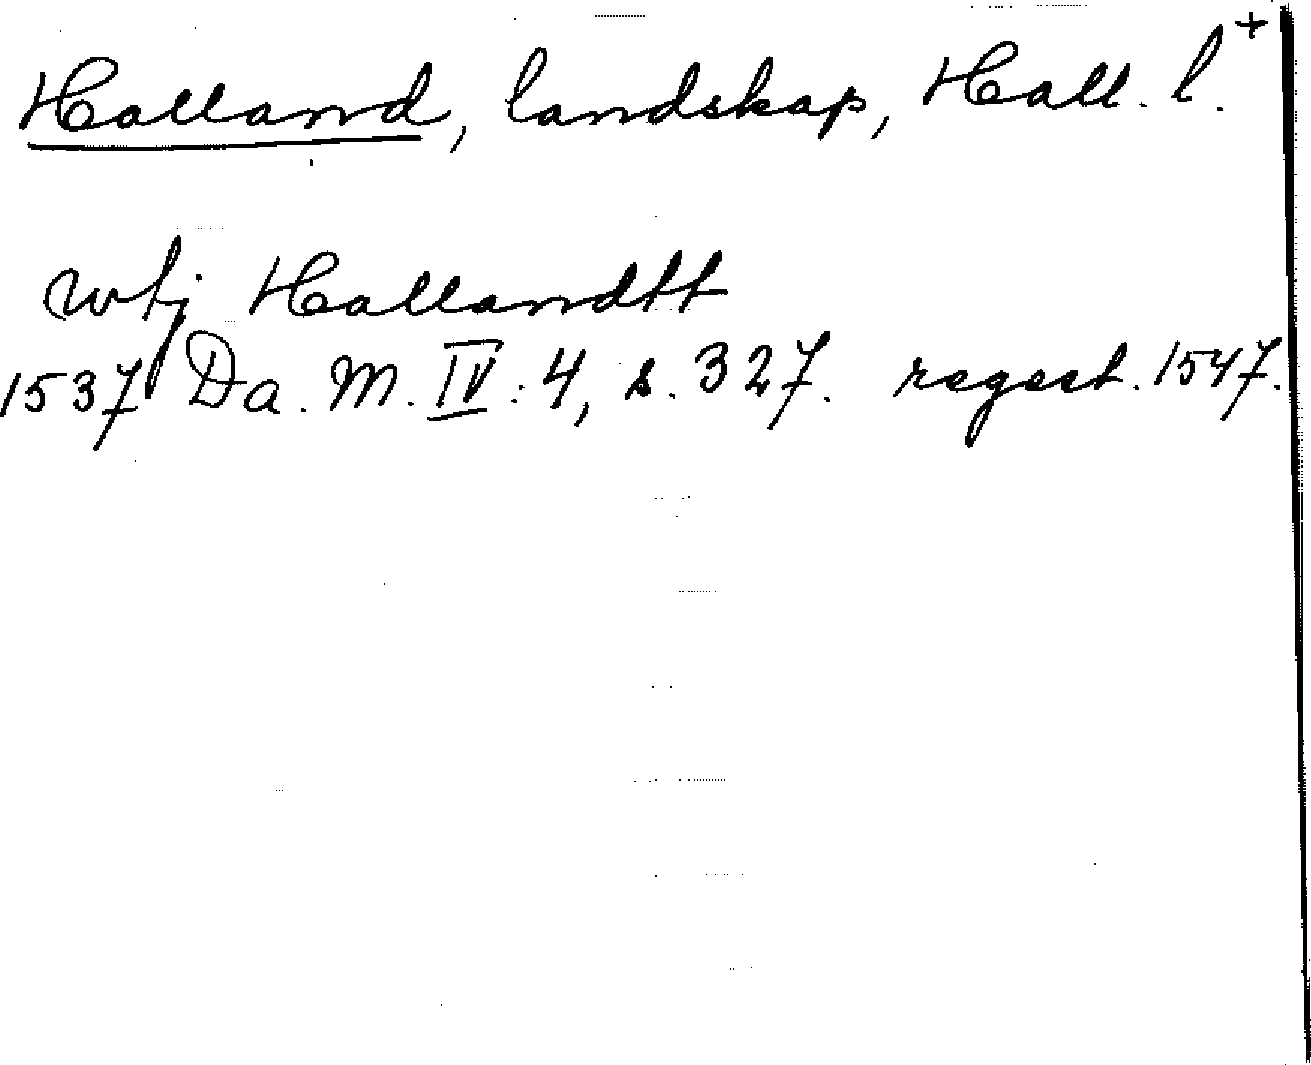 Halland, landskap, Hall. l. +
wtj Hallandtt
1537 Da. M. IV: 4, s. 327. regest. 1547.